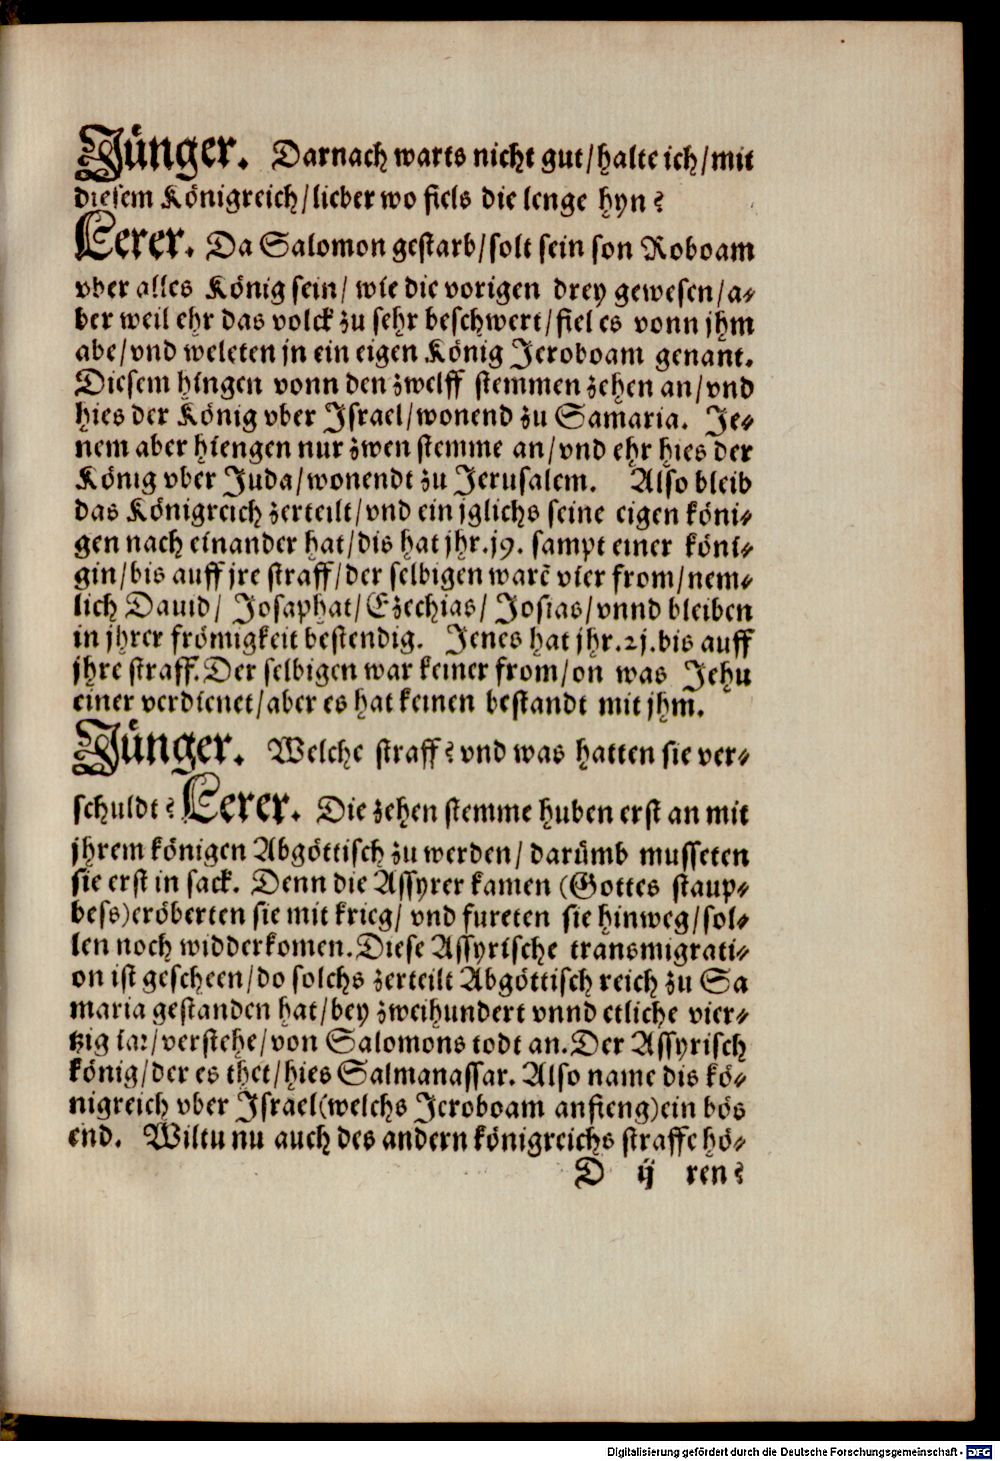 Jünger. Darnach warts nicht gut/halte ich/mit
diesem Königreich/lieber wo fiels die lenge hyn?
Lerer. Da Salomon gestarb/solt sein son Roboam
vber alles König sein/ wie die vorigen drey gewesen/a⸗
ber weil ehr das volck zu sehr beschwert/fiel es vonn jhm
abe/vnd weleten jn ein eigen König Jeroboam genant.
Diesem hingen vonn den zwelff stemmen zehen an/vnd
hies der König vber Israel/wonend zu Samaria. Je⸗
nem aber hiengen nur zwen stemme an/vnd ehr hies der
König vber Juda/wonendt zu Jerusalem. Also bleib
das Königreich zerteilt/vnd ein jglichs seine eigen köni⸗
gen nach einander hat/dis hat jhr.j9. sampt einer köni⸗
gin/bis auff jre straff/der selbigen warẽ vier from/nem⸗
lich Dauid/ Josaphat/Ezechias/ Josias/vnnd bleiben
in jhrer frömigkeit bestendig. Jenes hat jhr.2j.bis auff
jhre straff.Der selbigen war keiner from/on was Jehu
einer verdienet/aber es hat keinen bestandt mit jhm̃.
Jünger. Welche straff? vnd was hatten sie ver⸗
schuldt? Lerer. Die zehen stemme huben erst an mit
jhrem königen Abgöttisch zu werden/ darümb musseten
sie erst in sack. Denn die Assyrer kamen (Gottes staup⸗
bess)eröberten sie mit krieg/ vnd fureten sie hinweg/sol⸗
len noch widderkomen.Diese Assyrische transmigrati⸗
on ist gescheen/do solchs zerteilt Abgöttisch reich zu Sa
maria gestanden hat/bey zweihundert vnnd etliche vier⸗
tzig iar/verstehe/von Salomons todt an.Der Assyrisch
könig/der es thet/hies Salmanassar. Also name dis kö⸗
nigreich vber Israel(welchs Jeroboam anfieng)ein bös
end. Wiltu nu auch des andern königreichs straffe hö⸗
D ij ren?
Digitalisierung gefördert durch die Deutsche Forschungsgemeinschaft - DFG